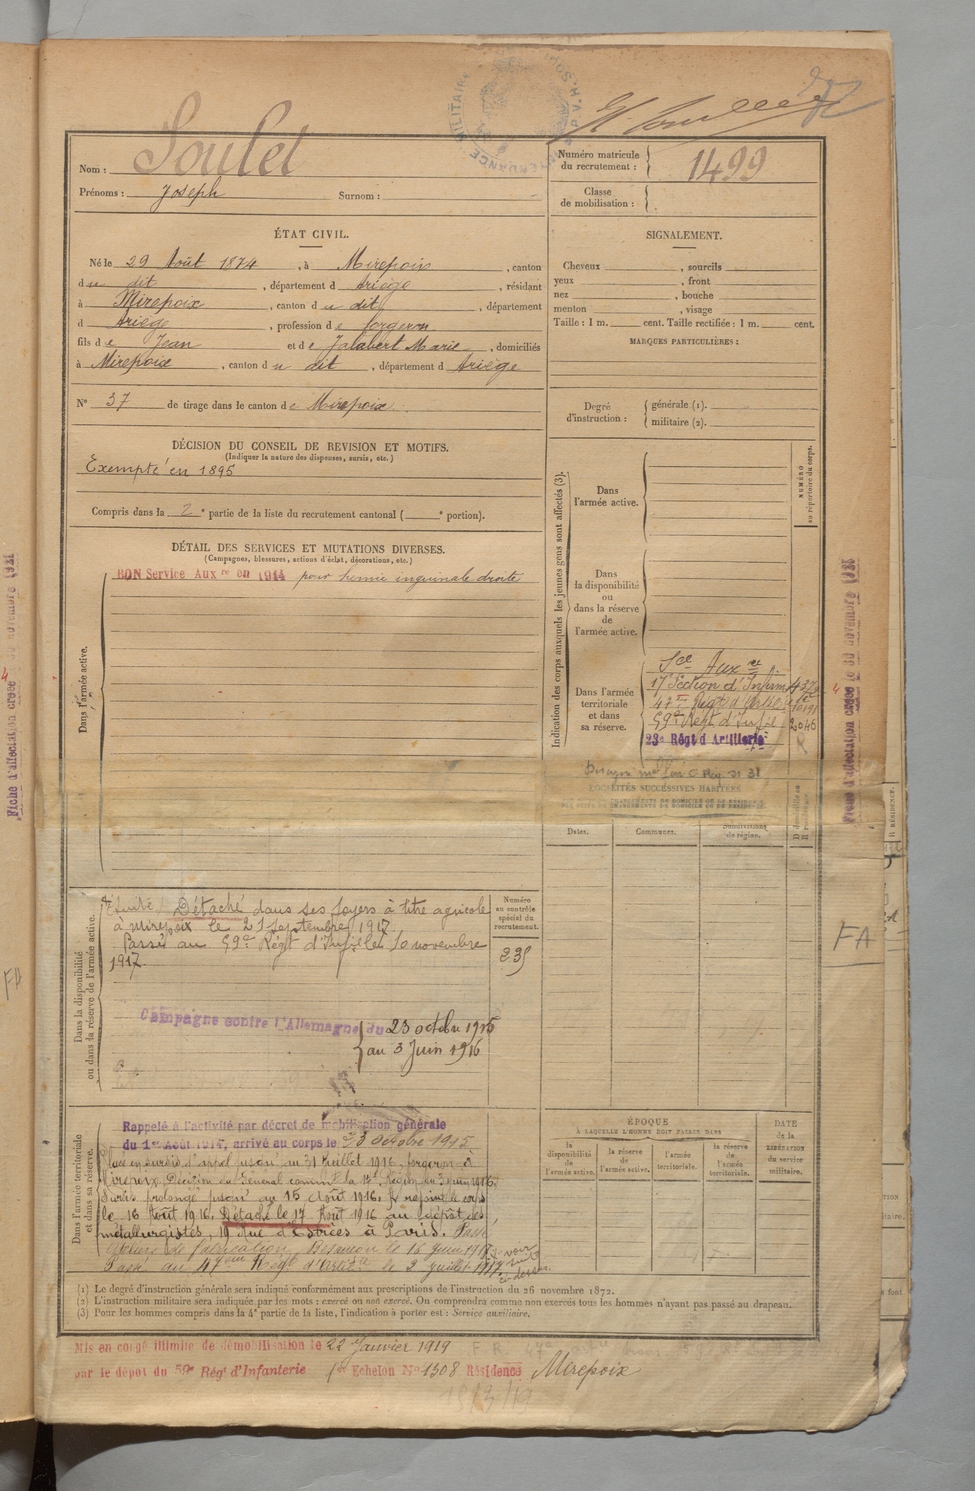 Nom : Soulet
Prénoms : Joseph Surnom :
Numéro matricule
du recrutement :
1499
Classe
de mobilisation :
ÉTAT CIVIL.
Né le 29 Août 1874, à Mirepoix, canton
du dit, département d Ariège, résidant
à Mirepoix, canton du dit, département
d Ariège, profession de forgeron
fils de Jean et de Jalabert Marie, domiciliés
à Mirepoix, canton du dit, département d Ariège
N° 37 de tirage dans le canton de Mirepoix.
DÉCISION DU CONSEIL DE REVISION ET MOTIFS.
(Indiquer la nature des dispenses, sursis, etc.)
Exempté en 1895
Compris dans la 2e partie de la liste du recrutement cantonal ( e portion).
DÉTAIL DES SERVICES ET MUTATIONS DIVERSES.
(Campagnes, blessures, actions d'éclat, décorations, etc.)
Dans l'armée active.
BON Service Auxre en 1914 pour hernie inguinale droite
SIGNALEMENT.
Cheveux , sourcils
yeux , front
nez , bouche
menton , visage
Taille : 1 m. cent. Taille rectifiée : 1 m. cent.
MARQUES PARTICULIÈRES :
Degré
d'instruction :
générale (1).
militaire (2).
Indication des corps auxquels les jeunes gens sont affectés (3).
NUMÉRO
au répertoire du corps.
Dans
l'armée active.
Dans
la disponibilité
ou
dans la réserve
de
l'armée active.
Dans l'armée
territoriale
et dans
sa réserve.
Sce Auxre
17e Section d'Infirm
47e Régt d'Artie
59e Régt d'Infie
2046
23e Régt d'Artillerie
LOCALITÉS SUCCESSIVES HABITÉES
Dates.
Communes.
Subdivisions
de région.
D domicile ou
R résidence.
Fiche d'affectation créée le 30 novembre 1921
Fiche d'affectation créée le 30 novembre 1921
FA
Dans la disponibilité
ou dans la réserve de l'armée active.
Détaché dans ses foyers à titre agricole
à Mirepoix le 21 Septembre 1917.
Passé au 59e Régt d'Infie le 10 novembre
1917.
Numéro
au contrôle
spécial du
recrutement.
235
Campagne contre l'Allemagne du 23 octobre 1915
au 3 Juin 1916
Dans l'armée territoriale
et dans sa réserve.
Rappelé à l'activité par décret de mobilisation générale
du 1er Août 1914, arrivé au corps le 23 octobre 1915
Placé en sursis d'appel jusqu'au 31 Juillet 1916, forgeron à
Mirepoix, Décision du Général commt la 17e Région du 3 juin 1916.
Sursis prolongé jusqu'au 15 Août 1916. A rejoint le corps
le 16 Août 1916. Détaché le 17 Août 1916 au dépôt des
métallurgistes, 19 Rue d'Estrées à Paris. Passé
de fabrication, Besançon le 16 Juin 1917
Passé au 47eme Régt d'Artie le 2 juillet 1917
voir
suite
ci-dessus.
ÉPOQUE
À LAQUELLE L'HOMME DOIT PASSER DANS
la
disponibilité
de
l'armée active.
la réserve
de
l'armée active.
l'armée
territoriale.
la réserve
de
l'armée
territoriale.
DATE
de la
LIBÉRATION
du service
militaire.
(1) Le degré d'instruction générale sera indiqué conformément aux prescriptions de l'instruction du 26 novembre 1872.
(2) L'instruction militaire sera indiquée par les mots : exercé ou non exercé. On comprendra comme non exercés tous les hommes n'ayant pas passé au drapeau.
(3) Pour les hommes compris dans la 4e partie de la liste, l'indication à porter est : Service auxiliaire.
Mis en congé illimité de démobilisation le 22 Janvier 1919
par le dépôt du 59e Régt d'Infanterie Echelon No 1508 Résidence Mirepoix